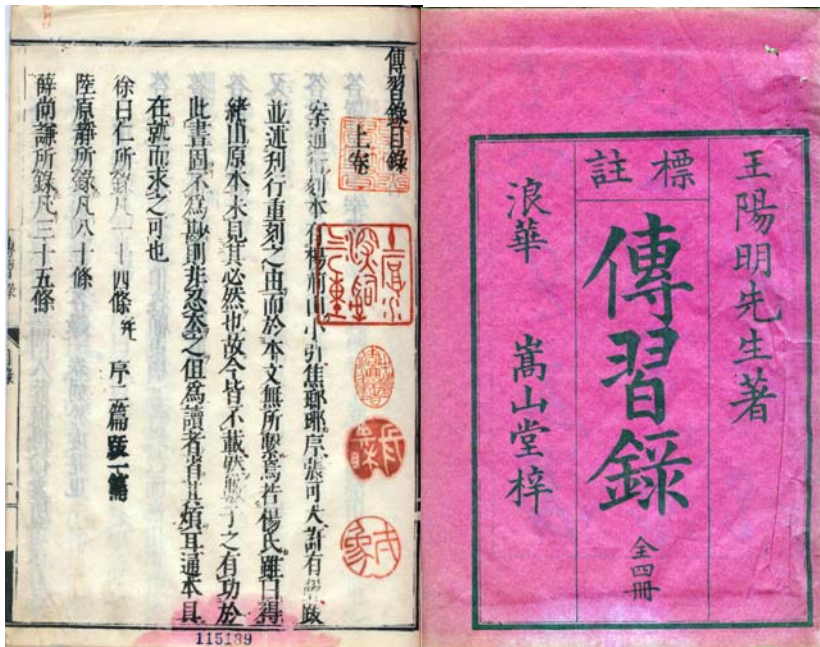 王陽明先生著
標註
傳習錄
全四冊
浪華 嵩山堂梓
傳習錄目錄
上卷
案通行刻本有楊荊山小引焦瑯琊序張可大許有聲跋
並述刊行重刻之由而於本文無所繫焉若楊氏雖曰得
緒山原本未見其必然也故今皆不載然數子之有功於
此書固不為尠則非忍沒之但為讀者省其煩耳通本具
在就而求之可也
徐曰仁所錄凡一十四條 序二篇 跋一篇
陸原靜所錄凡八十條
薛尚謙所錄凡三十五條
115189